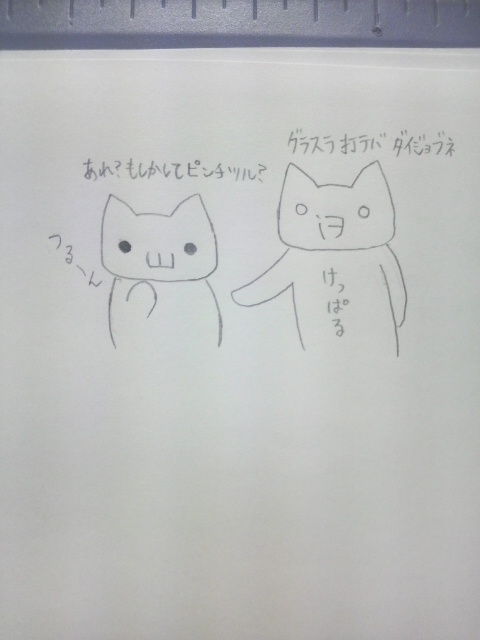 あれ?もしかしてピンチツル?
グラスラ打テバダイジョブネ
つるーん
けっぱる